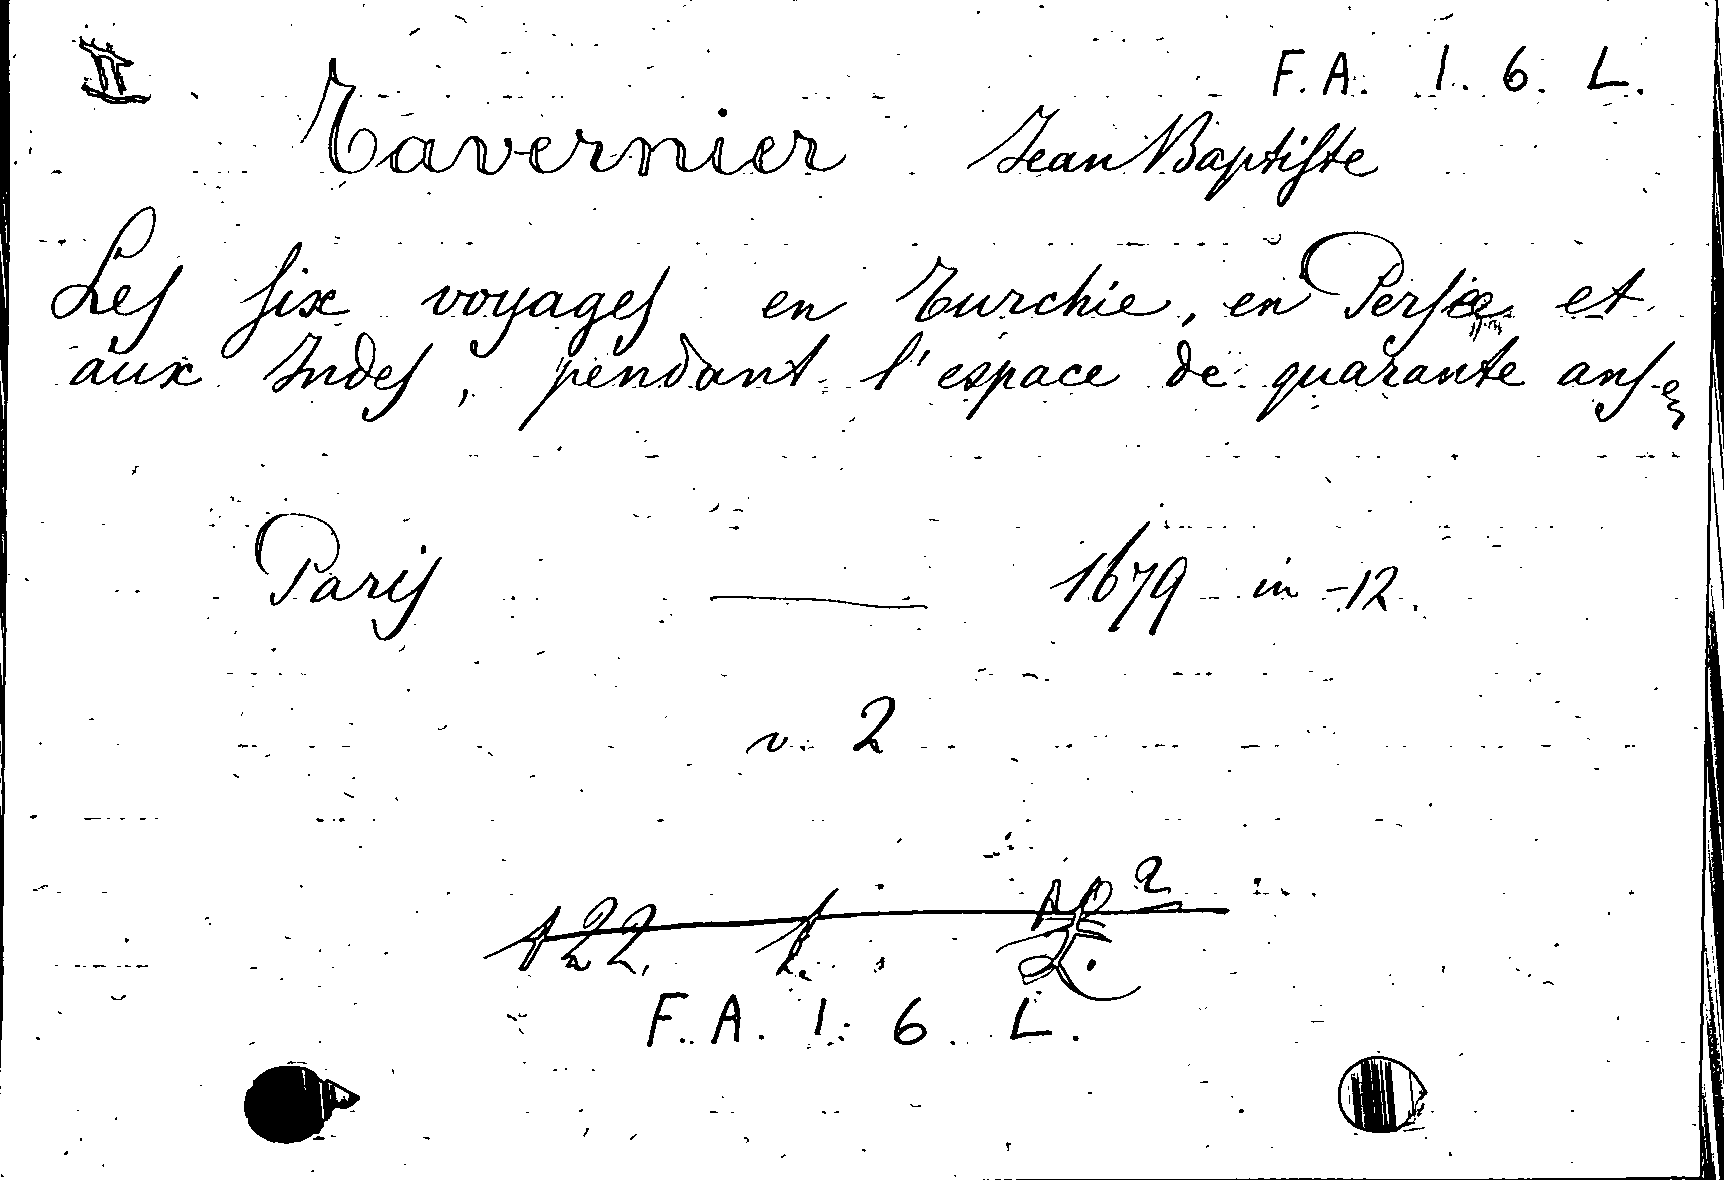 II
F. A. 1. 6. L.
Tavernier Jean Baptiste
Les six voyages en Turchie, en Perse et
aux Indes, pendant l'espace de quarante ans
Paris — 1679 in -12.
v. 2
122. 1.
F. A. 1. 6. L.